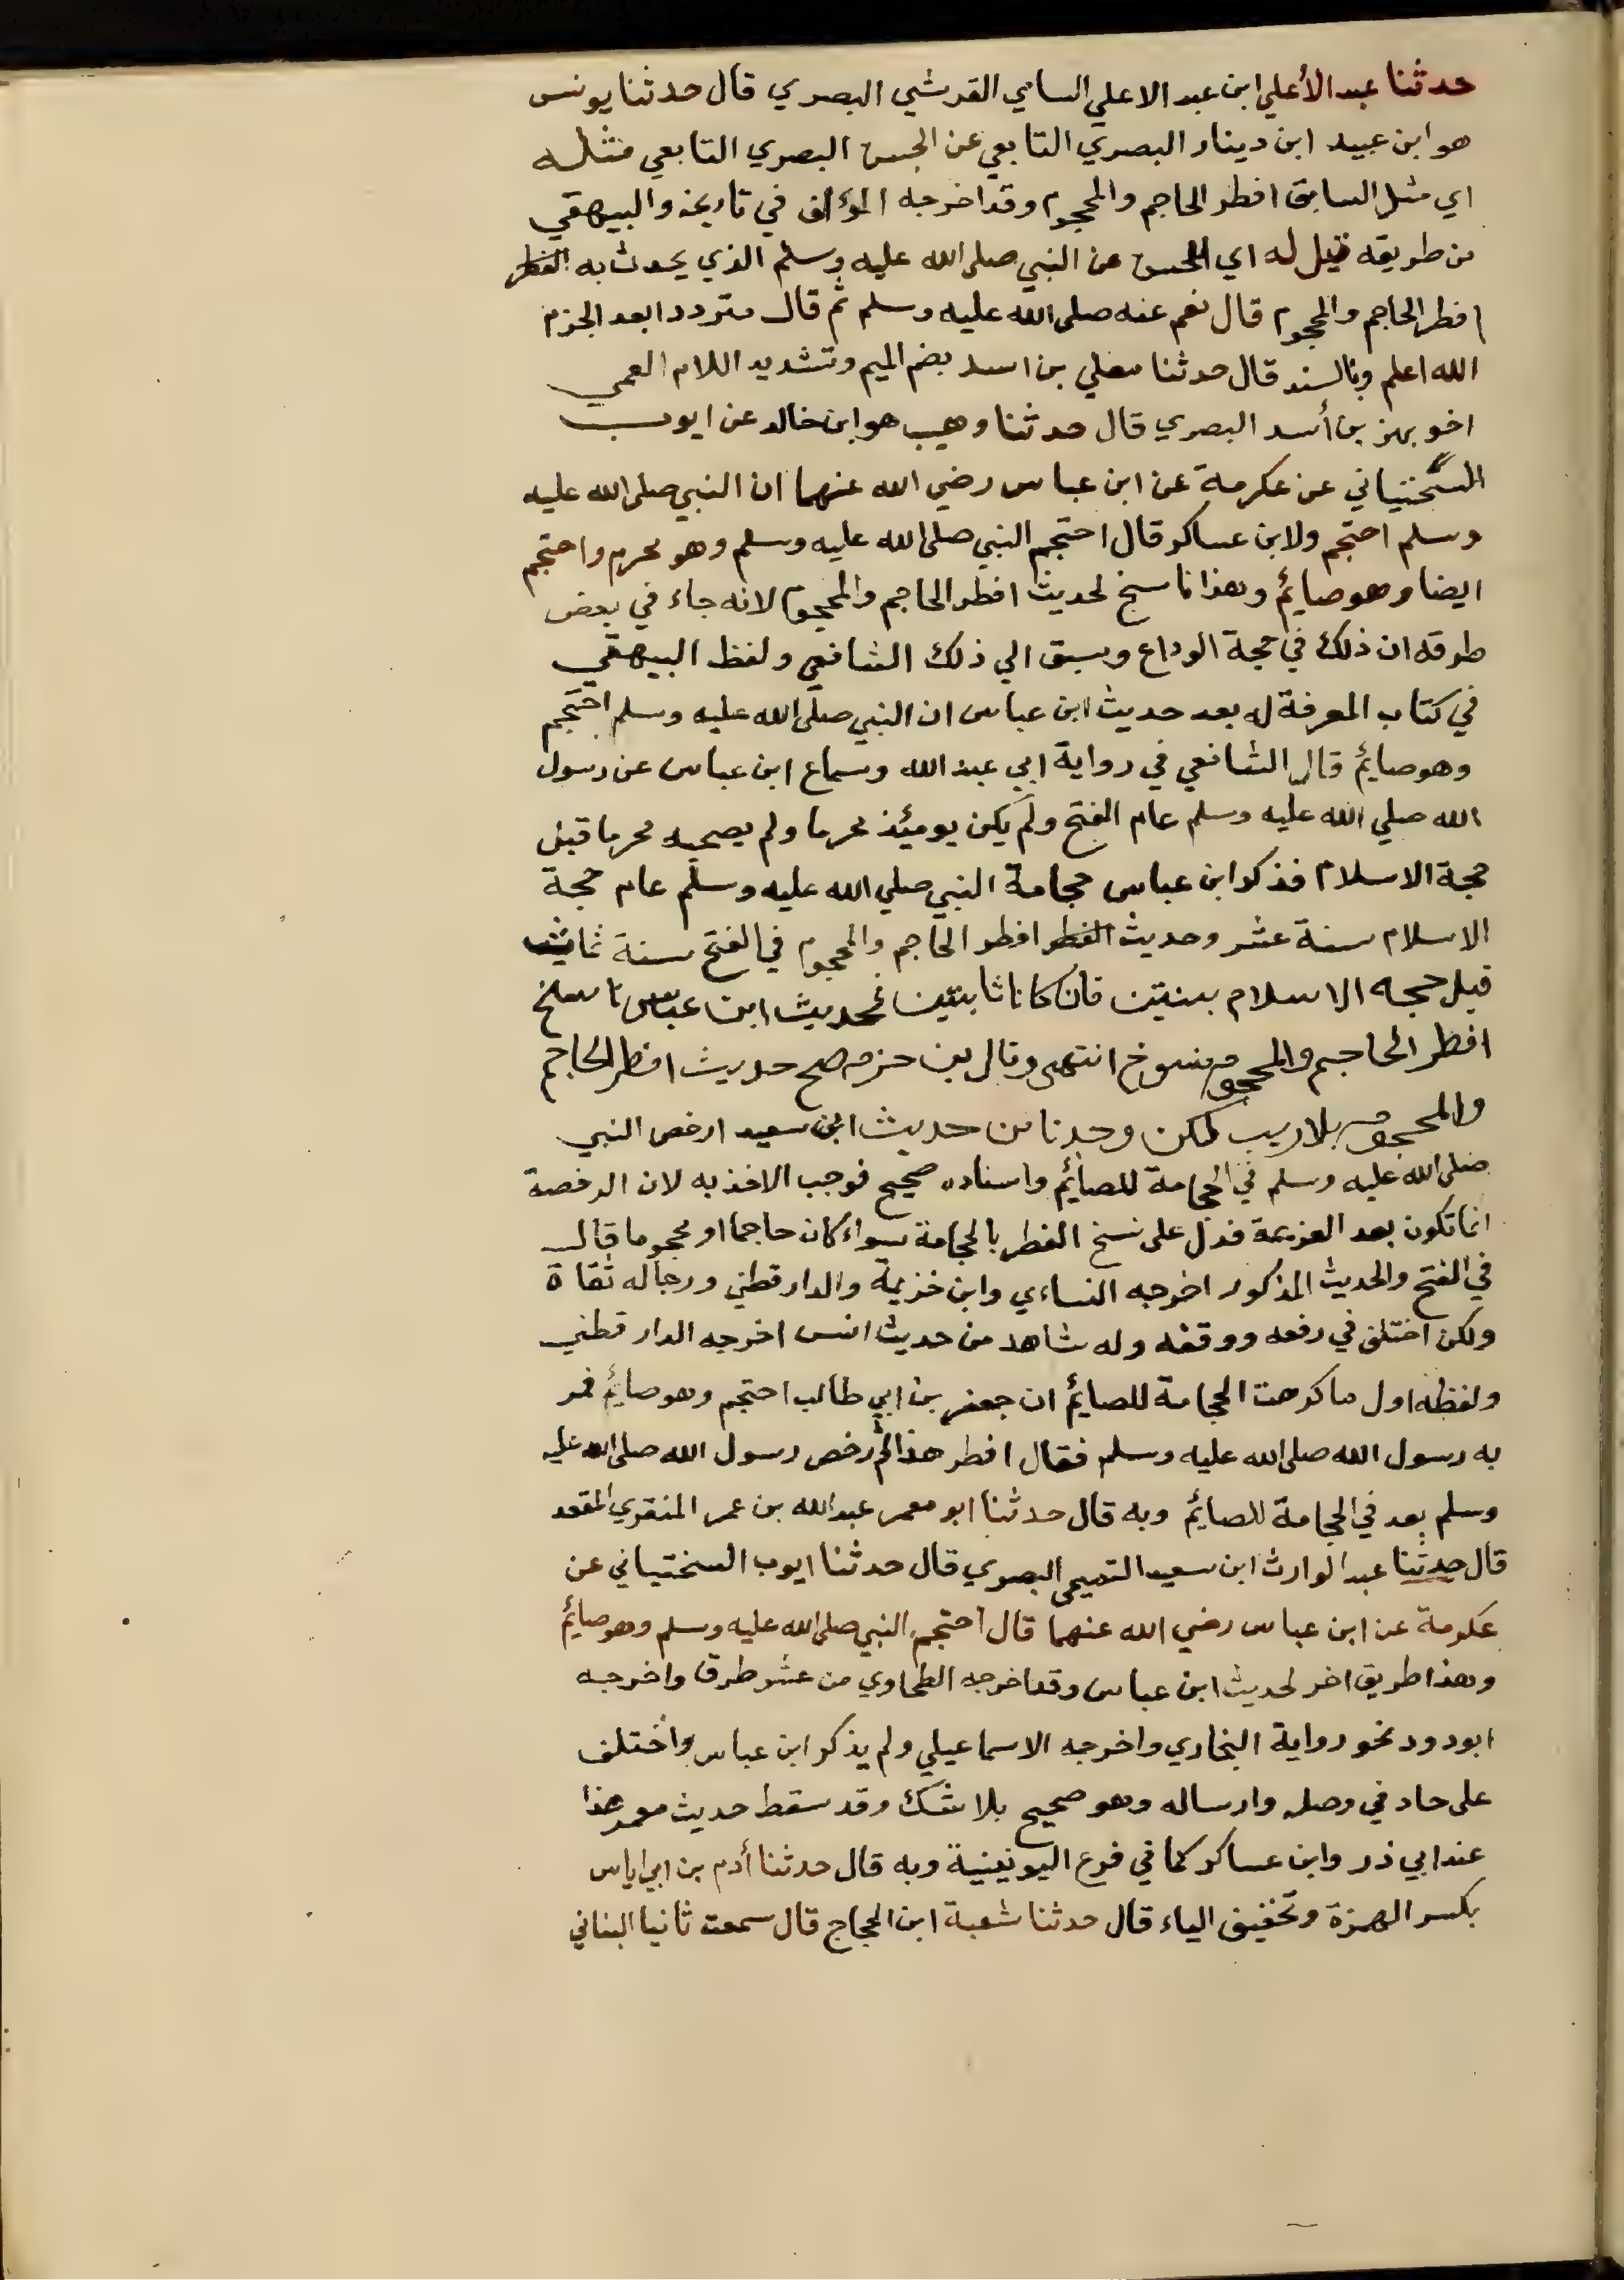 حدثنا عبد الأعلي ابن عبد الاعلي السامي القرشي البصري قال حدثنا يونس
هو ابن عبيد ابن دينار البصري التابعي عن الحسن البصري التابعي مثله
اي مثل السابق افطر الحاجم والمحجوم وقد اخرجه المؤلف في تاريخه والبيهقي
من طريقه قيل له اي للحسن عن النبي صلى الله عليه وسلم الذي يحدث به الفطر
افطر الحاجم والمحجوم قال نعم عنه صلى الله عليه وسلم ثم قال مترددا بعد الجزم
الله اعلم وبالسند قال حدثنا معلي بن اسد بضم الميم وتشديد اللام العمي
اخو بهز بن أسد البصري قال حدثنا وهيب هو ابن خالد عن ايوب
السختياني عن عكرمة عن ابن عباس رضي الله عنهما ان النبي صلى الله عليه
وسلم احتجم ولابن عساكر قال احتجم النبي صلى الله عليه وسلم وهو محرم واحتجم
ايضا وهو صايم وهذا ناسخ لحديث افطر الحاجم والمحجوم لانه جاء في بعض
طرقه ان ذلك في حجة الوداع وسبق الي ذلك الشافعي ولفظ البيهقي
في كتاب المعرفة له بعد حديث ابن عباس ان النبي صلى الله عليه وسلم احتجم
وهو صايم قال الشافعي في رواية ابي عبد الله وسماع ابن عباس عن رسول
الله صلي الله عليه وسلم عام الفتح ولم يكن يومئذ محرما ولم يصحبه محرما قبل
حجة الاسلام فذكر ابن عباس حجامة النبي صلي الله عليه وسلم عام حجة
الاسلام سنة عشر وحديث الفطر افطر الحاجم والمحجوم في الفتح سنة ثمان
قبل حجه الاسلام بسنتين فان كانا ثابتين فحديث ابن عباس ناسخ
افطر الحاجم والمحجوم منسوخ انتهى وقال بن حزم صح حديث افطر الحاجم
والمحجوم بلا ريب لكن وجدنا من حديث ابي سعيد ارخص النبي
صلى الله عليه وسلم في الحجامة للصايم واسناده صحيح فوجب الاخذ به لان الرخصة
انما تكون بعد العزيمة فدل على نسخ الفطر بالحجامة سواء كان حاجما او محجوما قال
في الفتح والحديث المذكور اخرجه النساءي وابن خزيمة والدارقطني ورجاله ثقاة
ولكن اختلف في رفعه ووقفه وله شاهد من حديث انس اخرجه الدارقطني
ولفظه اول ما كرهت الحجامة للصايم ان جعفر بن ابي طالب احتجم وهو صايم فمر
به رسول الله صلى الله عليه وسلم فقال افطر هذا ثم رخص رسول الله صلى الله عليه
وسلم بعد في الحجامة للصايم وبه قال حدثنا ابو معمر عبد الله بن عمر المنقري المقعد
قال حدثنا عبد الوارث ابن سعيد التميمي البصري قال حدثنا ايوب السختياني عن
عكرمة عن ابن عباس رضي الله عنهما قال احتجم النبي صلى الله عليه وسلم وهو صايم
وهذا طريق اخر لحديث ابن عباس وقد اخرجه الطحاوي من عشر طرق واخرجه
ابودود نحو رواية البخاري واخرجه الاسماعيلي ولم يذكر ابن عباس واختلف
على حماد في وصله وارساله وهو صحيح بلا شك وقد سقط حديث معمر هذا
عند ابي ذر وابن عساكر كما في فرع اليونينية وبه قال حدثنا أدم بن ابي اياس
بكسر الهمزة وتخفيف الياء قال حدثنا شعبة ابن الحجاج قال سمعت ثانيا البناني